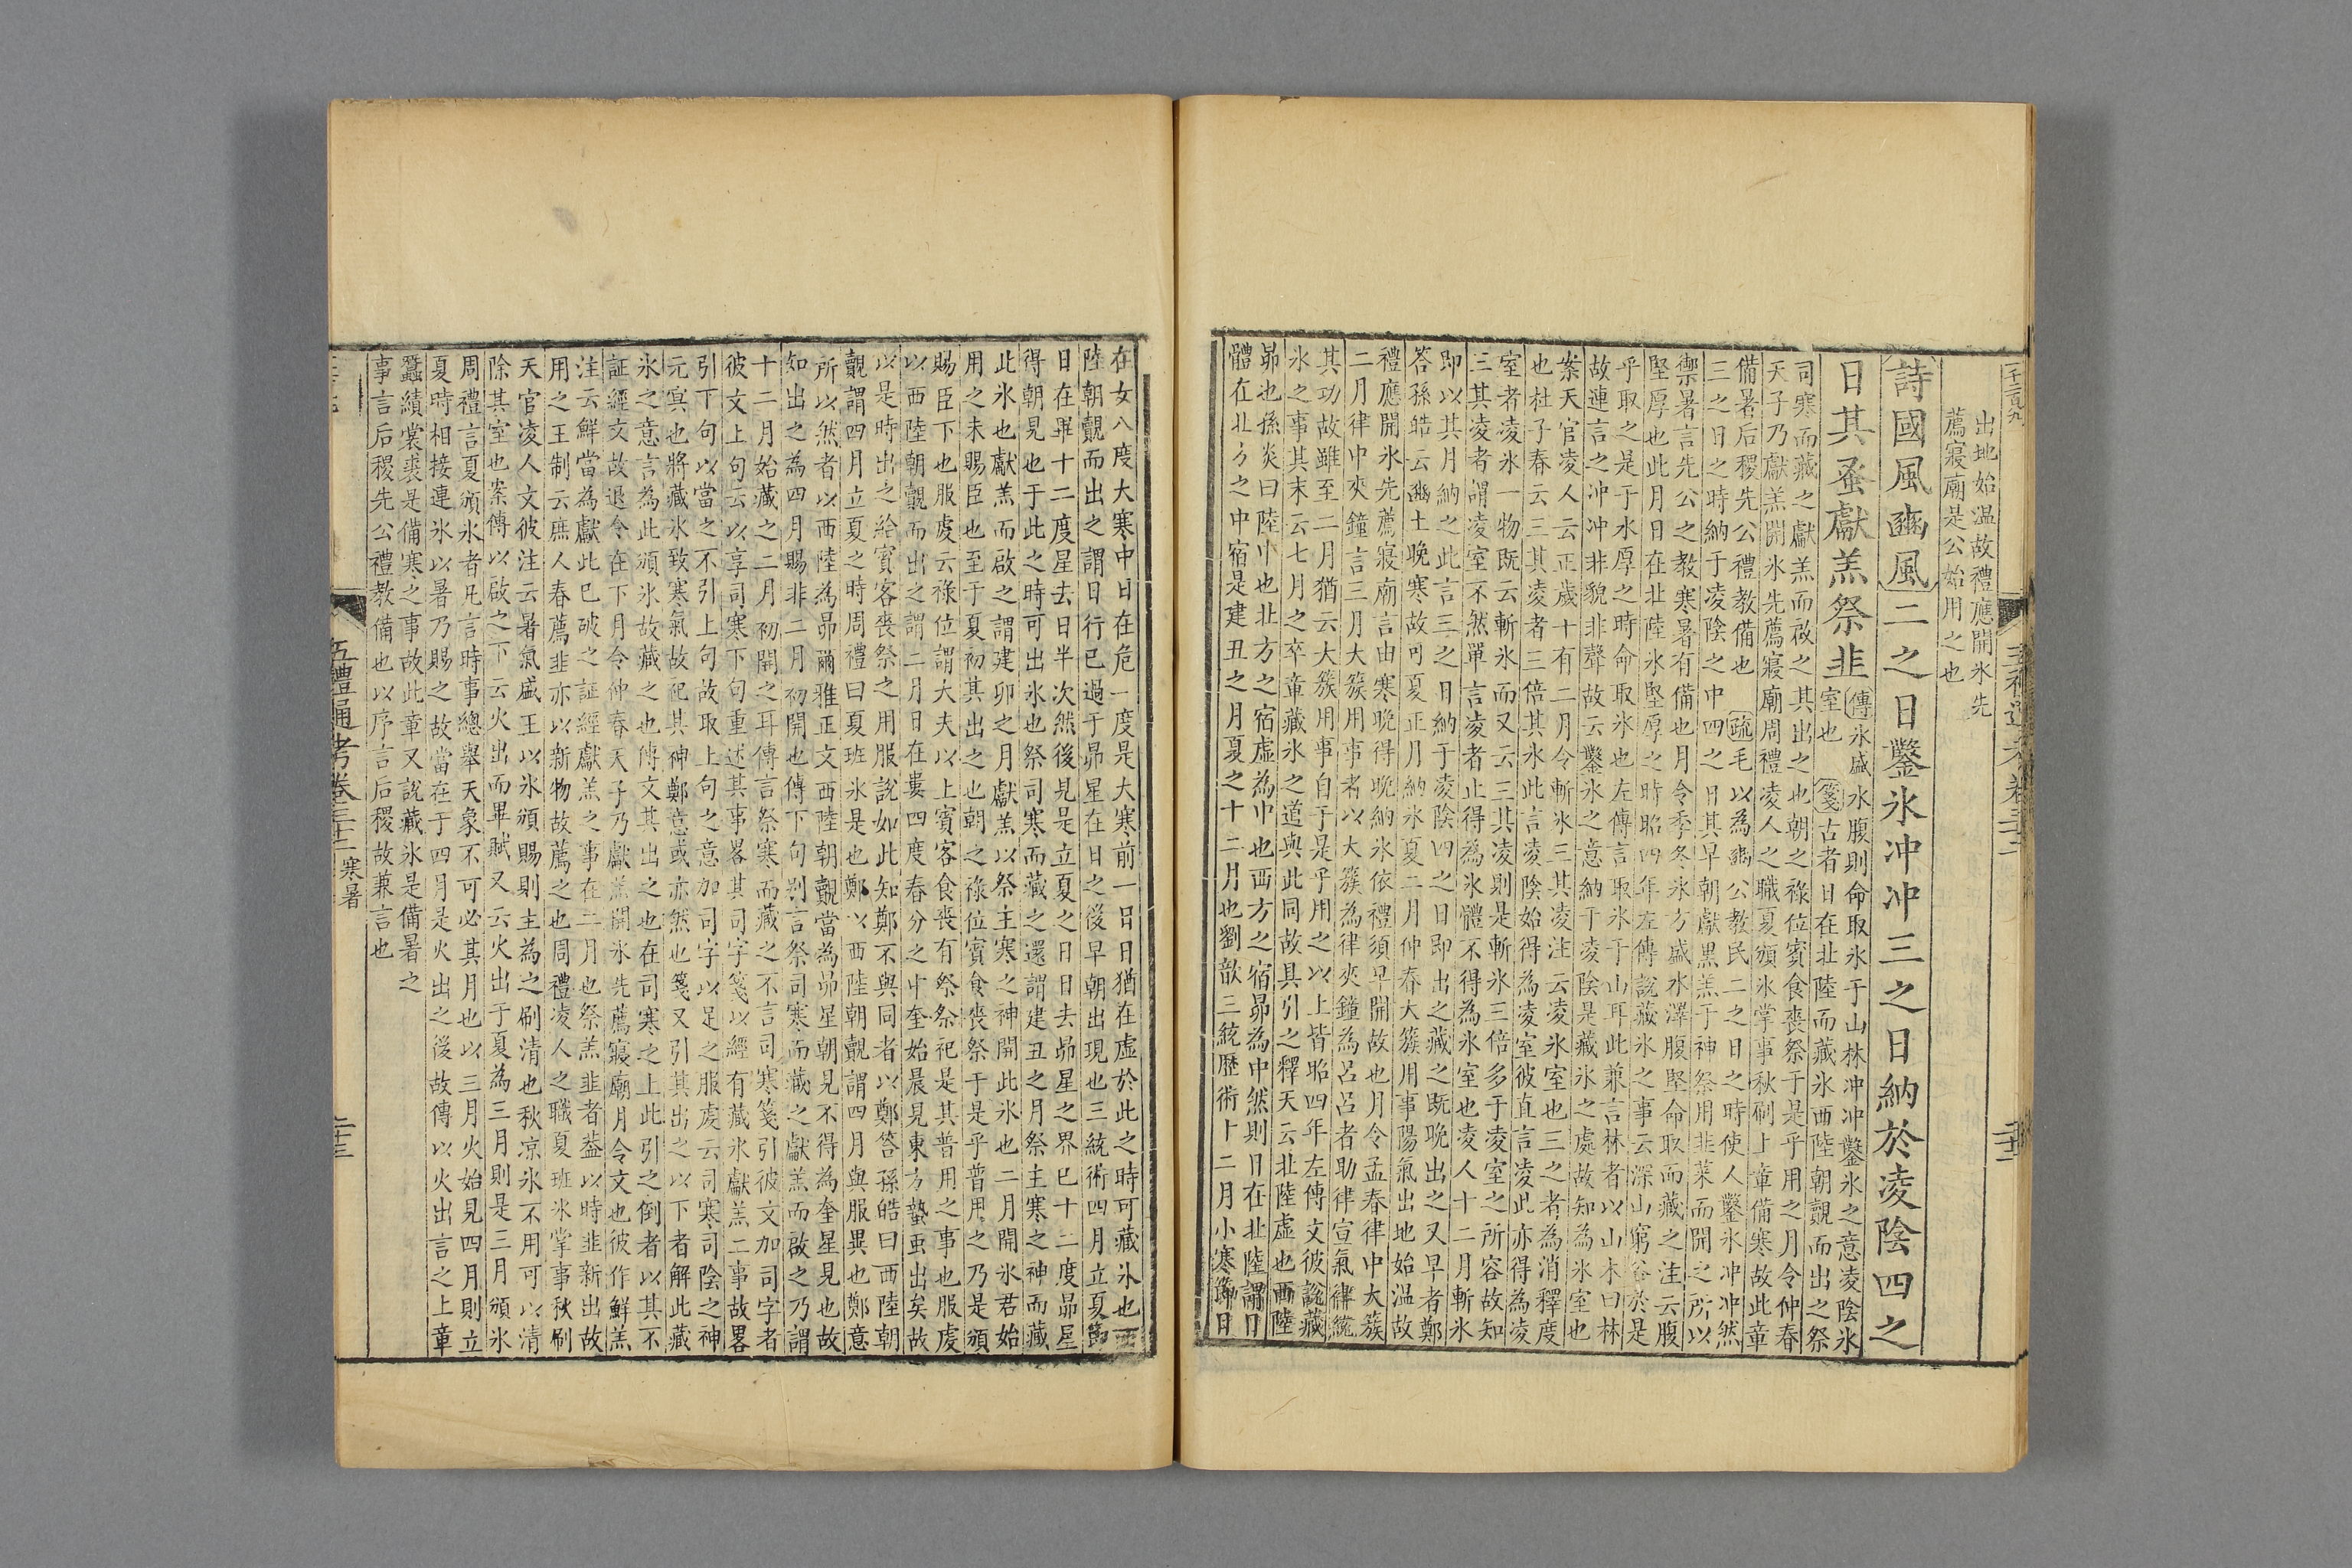 出地始温故禮應開氷先
薦寢廟是公始用之也
詩國風豳風二之日鑿氷冲冲三之日納於凌陰四之
日其蚤獻羔祭韭
傳氷盛水腹則命取氷于山林冲冲鑿氷之意凌陰氷
室也箋古者日在北陸而藏氷西陸朝覿而出之祭
司寒而藏之獻羔而啟之其出之也朝之祿位賓食喪祭于是乎用之月令仲春
天子乃獻羔開氷先薦寢廟周禮凌人之職夏頒氷掌事秋刷上章備寒故此章
備暑后稷先公禮教備也疏毛以為豳公教民二之日之時使人鑿氷冲冲然
三之日之時納于凌陰之中四之日其早朝獻黑羔于神祭用韭菜而開之所以
禦暑言先公之教寒暑有備也月令季冬氷方盛水澤腹堅命取而藏之注云腹
堅厚也此月日在北陸氷堅厚之時昭四年左傳說藏氷之事云深山窮谷於是
乎取之是于水厚之時命取氷也左傳言取氷于山耳此兼言林者以山木曰林
故連言之冲冲非貌非聲故云鑿氷之意納于凌陰是藏氷之處故知為氷室也
案天官凌人云正歲十有二月令斬氷三其凌注云凌氷室也三之者為消釋度
也杜子春云三其凌者三倍其氷此言凌陰始得為凌室彼直言凌此亦得為凌
室者凌氷一物既云斬氷而又云三其凌則是斬氷三倍多于凌室之所容故知
三其凌者謂凌室不然單言凌者止得為氷體不得為氷室也凌人十二月斬氷
即以其月納之此言三之日納于凌陰四之日即出之藏之既晚出之又早者鄭
答孫皓云豳土晚寒故可夏正月納氷夏二月仲春大簇用事陽氣出地始温故
禮應開氷先薦寢廟言由寒晚得晚納氷依禮須早開故也月令孟春律中大簇
二月律中夾鐘言三月大簇用事者以大簇為律夾鐘為呂呂者助律宣氣律統
其功故雖至二月猶云大簇用事自于是乎用之以上皆昭四年左傳文彼說藏
氷之事其末云七月之卒章藏氷之道與此同故具引之釋天云北陸虛也西陸
昴也孫炎曰陸中也北方之宿虛為中也西方之宿昴為中然則日在北陸謂日
體在北方之中宿是建丑之月夏之十二月也劉歆三統歷術十二月小寒節日
在女八度大寒中日在危一度是大寒前一日日猶在虛於此之時可藏氷也西
陸朝覿而出之謂日行已過于昴星在日之後早朝出現也三統術四月立夏節
日在畢十二度星去日半次然後見是立夏之日日去昴星之界已十二度昴星
得朝見也于此之時可出氷也祭司寒而藏之還謂建丑之月祭主寒之神而藏
此氷也獻羔而啟之謂建卯之月獻羔以祭主寒之神開此氷也二月開氷君始
用之未賜臣也至于夏初其出之也朝之祿位賓食喪祭于是乎普用之乃是頒
賜臣下也服虔云祿位謂大夫以上賓客食喪有祭祭祀是其普用之事也服虔
以西陸朝覿而出之謂二月日在婁四度春分之中奎始晨見東方蟄虫出矣故
以是時出之給賓客喪祭之用服說如此知鄭不與同者以鄭答孫皓曰西陸朝
覿謂四月立夏之時周禮曰夏班氷是也鄭以西陸朝覿謂四月與服異也鄭意
所以然者以西陸為昴爾雅正文西陸朝覿當為昴星朝見不得為奎星見也故
知出之為四月賜非二月初開也傳下句別言祭司寒而藏之獻羔而啟之乃謂
十二月始藏之二月初開之耳傳言祭寒而藏之不言司寒箋引彼文加司字者
彼文上句云以享司寒下句重述其事畧其司字箋以經有藏氷獻羔二事故畧
引下句以當之不引上句故取上句之意加司字以足之服虔云司寒司陰之神
元冥也將藏氷致寒氣故祀其神鄭意或亦然也箋又引其出之以下者解此藏
氷之意言為此頒氷故藏之也傳文其出之也在司寒之上此引之倒者以其不
証經文故退令在下月令仲春天子乃獻羔開氷先薦寢廟月令文也彼作鮮羔
注云鮮當為獻此已破之証經獻羔之事在二月也祭羔韭者葢以時韭新出故
用之王制云庶人春薦韭亦以新物故薦之也周禮凌人之職夏班氷掌事秋刷
天官凌人文彼注云暑氣盛王以氷頒賜則主為之刷清也秋凉氷不用可以清
除其室也案傳以啟之下云火出而畢賦又云火出于夏為三月則是三月頒氷
周禮言夏頒氷者凡言時事總舉天象不可必其月也以三月火始見四月則立
夏時相接連氷以暑乃賜之故當在于四月是火出之後故傳以火出言之上章
蠶績裳裘是備寒之事故此章又說藏氷是備暑之
事言后稷先公禮教備也以序言后稷故兼言也
五禮通考卷三十二 寒暑
二十三